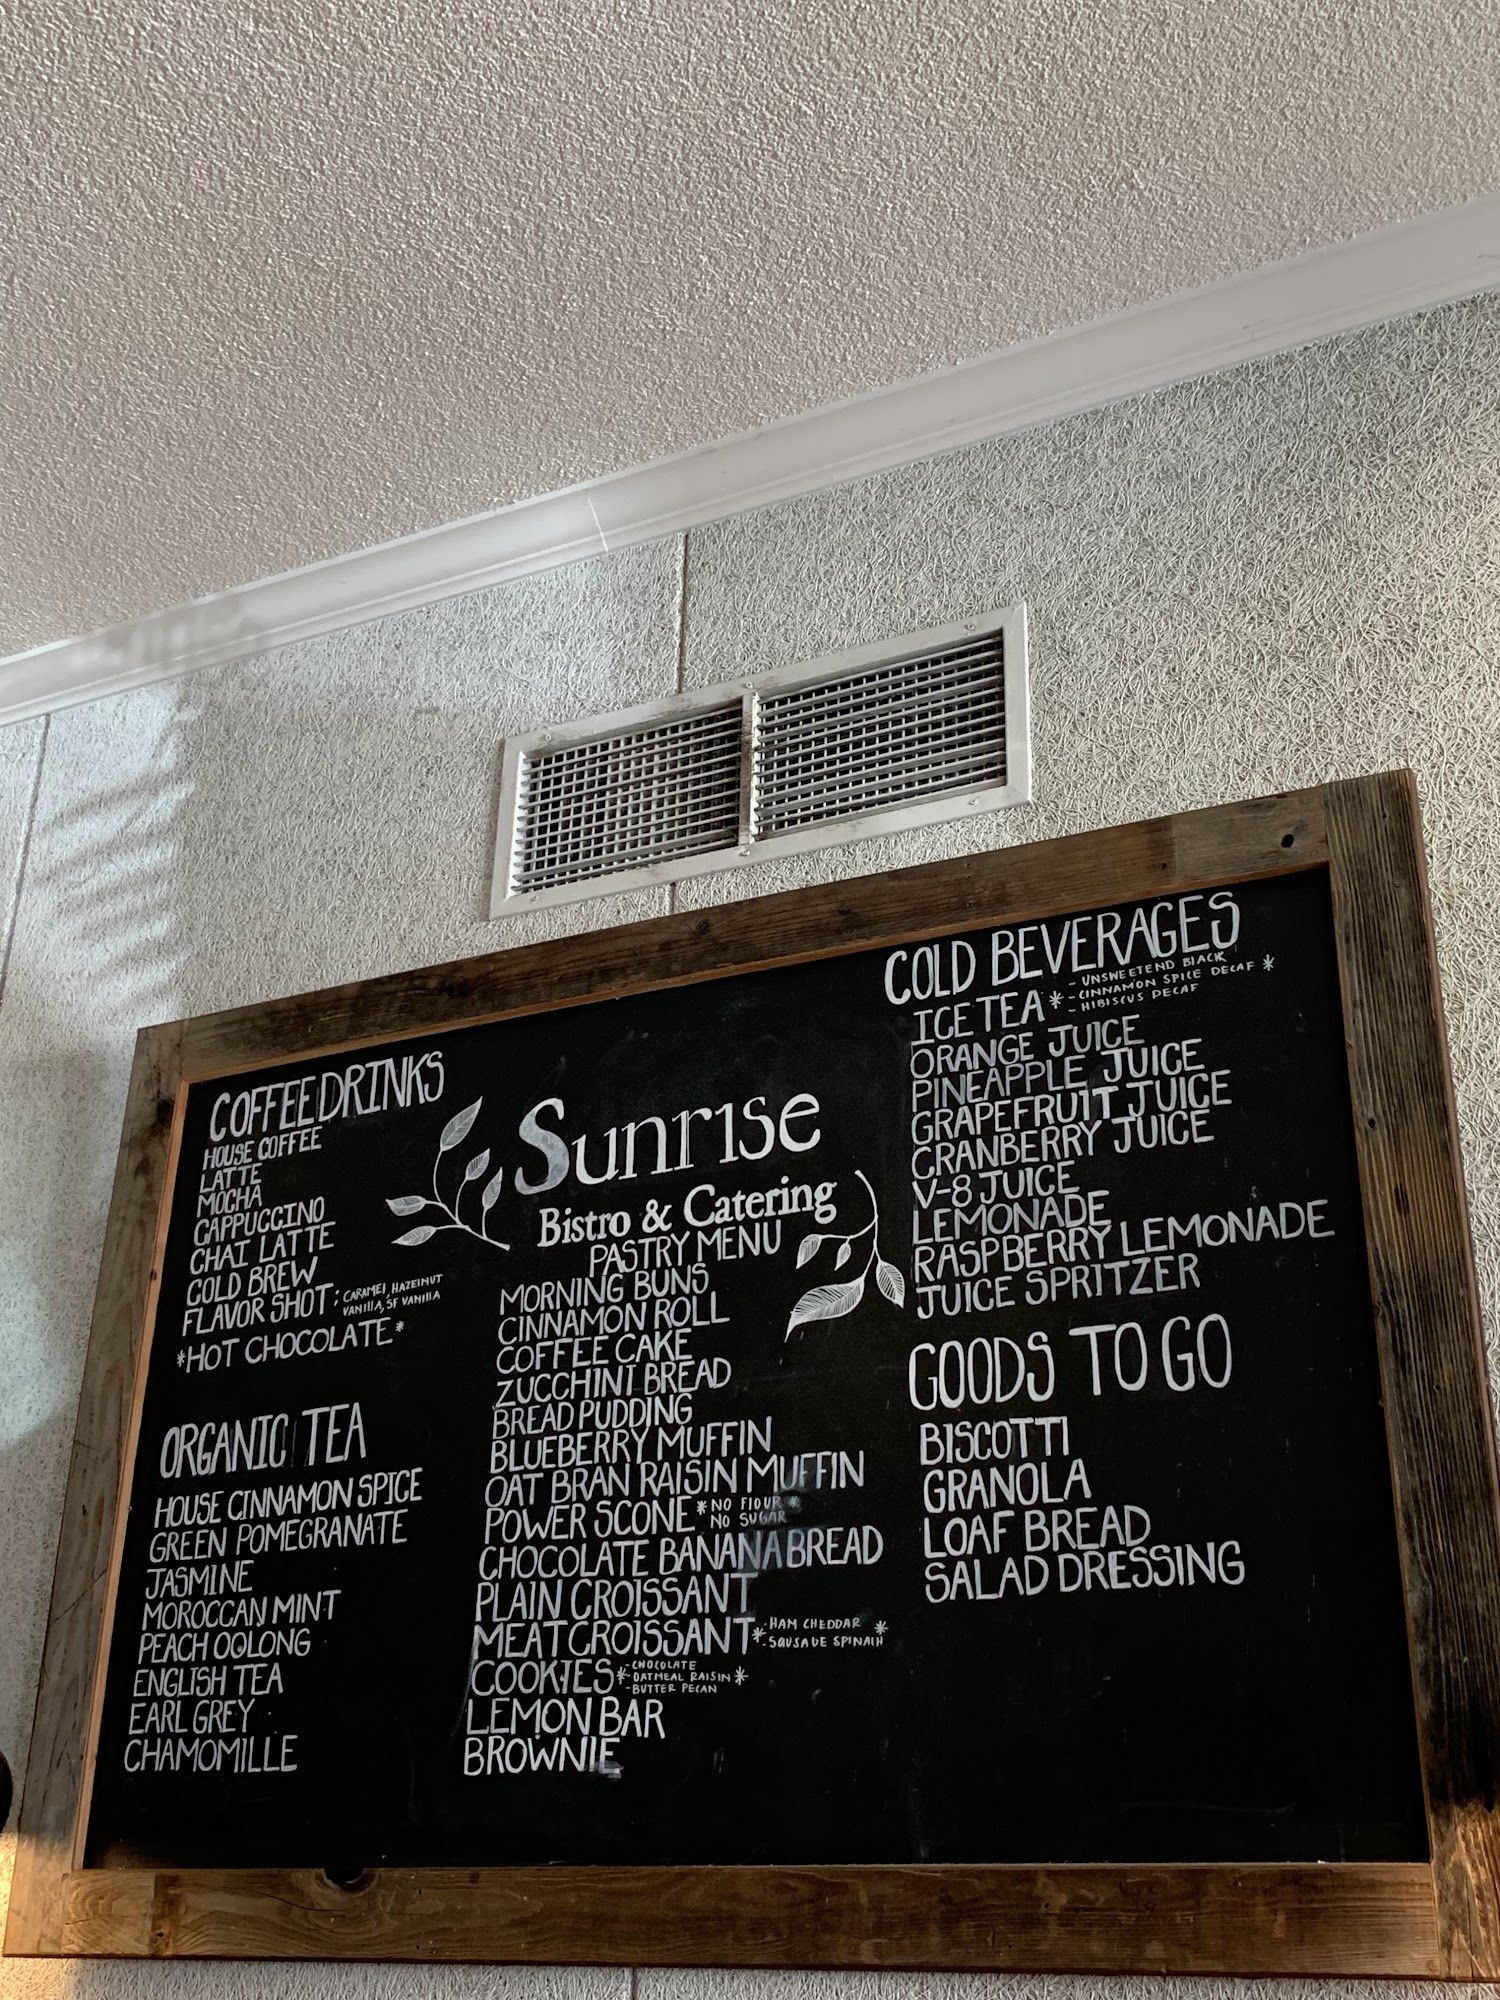 COFFEE DRINKS
HOUSE COFFEE
LATTE
MOCHA
CAPPUCCINO
CHAI LATTE
COLD BREW
FLAVOR SHOT: CARAMEL, HAZELNUT
VANILLA, SF VANILLA
*HOT CHOCOLATE*
ORGANIC TEA
HOUSE CINNAMON SPICE
GREEN POMEGRANATE
JASMINE
MOROCCAN MINT
PEACH OOLONG
ENGLISH TEA
EARL GREY
CHAMOMILLE
Sunrise
Bistro & Catering
PASTRY MENU
MORNING BUNS
CINNAMON ROLL
COFFEE CAKE
ZUCCHINI BREAD
BREAD PUDDING
BLUEBERRY MUFFIN
OAT BRAN RAISIN MUFFIN
POWER SCONE *NO FLOUR*
NO SUGAR
CHOCOLATE BANANA BREAD
PLAIN CROISSANT
MEAT CROISSANT *-HAM CHEDDAR *
-SAUSAGE SPINAIH
COOKIES *-CHOCOLATE
-OATMEAL RAISIN *
-BUTTER PECAN
LEMON BAR
BROWNIE
COLD BEVERAGES
ICE TEA * - UNSWEETEND BLACK
- CINNAMON SPICE DECAF *
- HIBISCUS DECAF
ORANGE JUICE
PINEAPPLE JUICE
GRAPEFRUIT JUICE
CRANBERRY JUICE
V-8 JUICE
LEMONADE
RASPBERRY LEMONADE
JUICE SPRITZER
GOODS TO GO
BISCOTTI
GRANOLA
LOAF BREAD
SALAD DRESSING